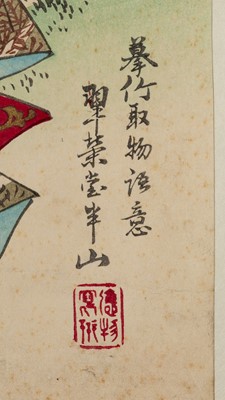 摹竹取物語意
翠榮堂半山